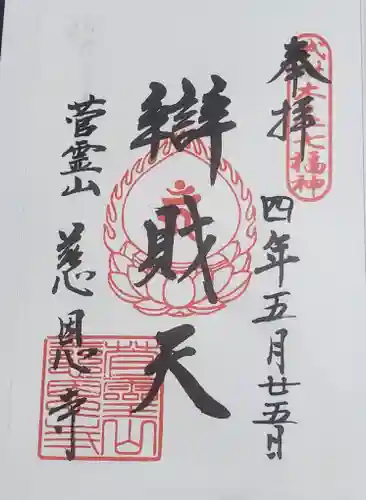 奉拝
七福神
四年五月廿五日
辯財天
菅霊山
慈恩寺